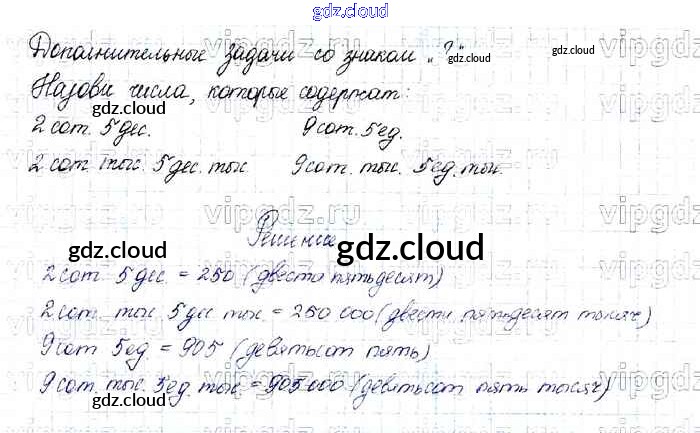 gdz.cloud
Дополнительные задачи со знаком „?“
gdz.cloud
Назови числа, которые содержат:
gdz.cloud
2 сот. 5 дес. 9 сот. 5 ед.
gdz.cloud
2 сот. тыс. 5 дес. тыс. 9 сот. тыс. 5 ед. тыс.
gdz.cloud
Решение
gdz.cloud gdz.cloud
2 сот. 5 дес. = 250 (двести пятьдесят)
2 сот. тыс. 5 дес. тыс. = 250 000 (двести пятьдесят тысяч)
9 сот 5 ед = 905 (девятьсот пять)
9 сот. тыс. 5 ед. тыс. = 905 000 (девятьсот пять тысяч)
gdz.cloud gdz.cloud